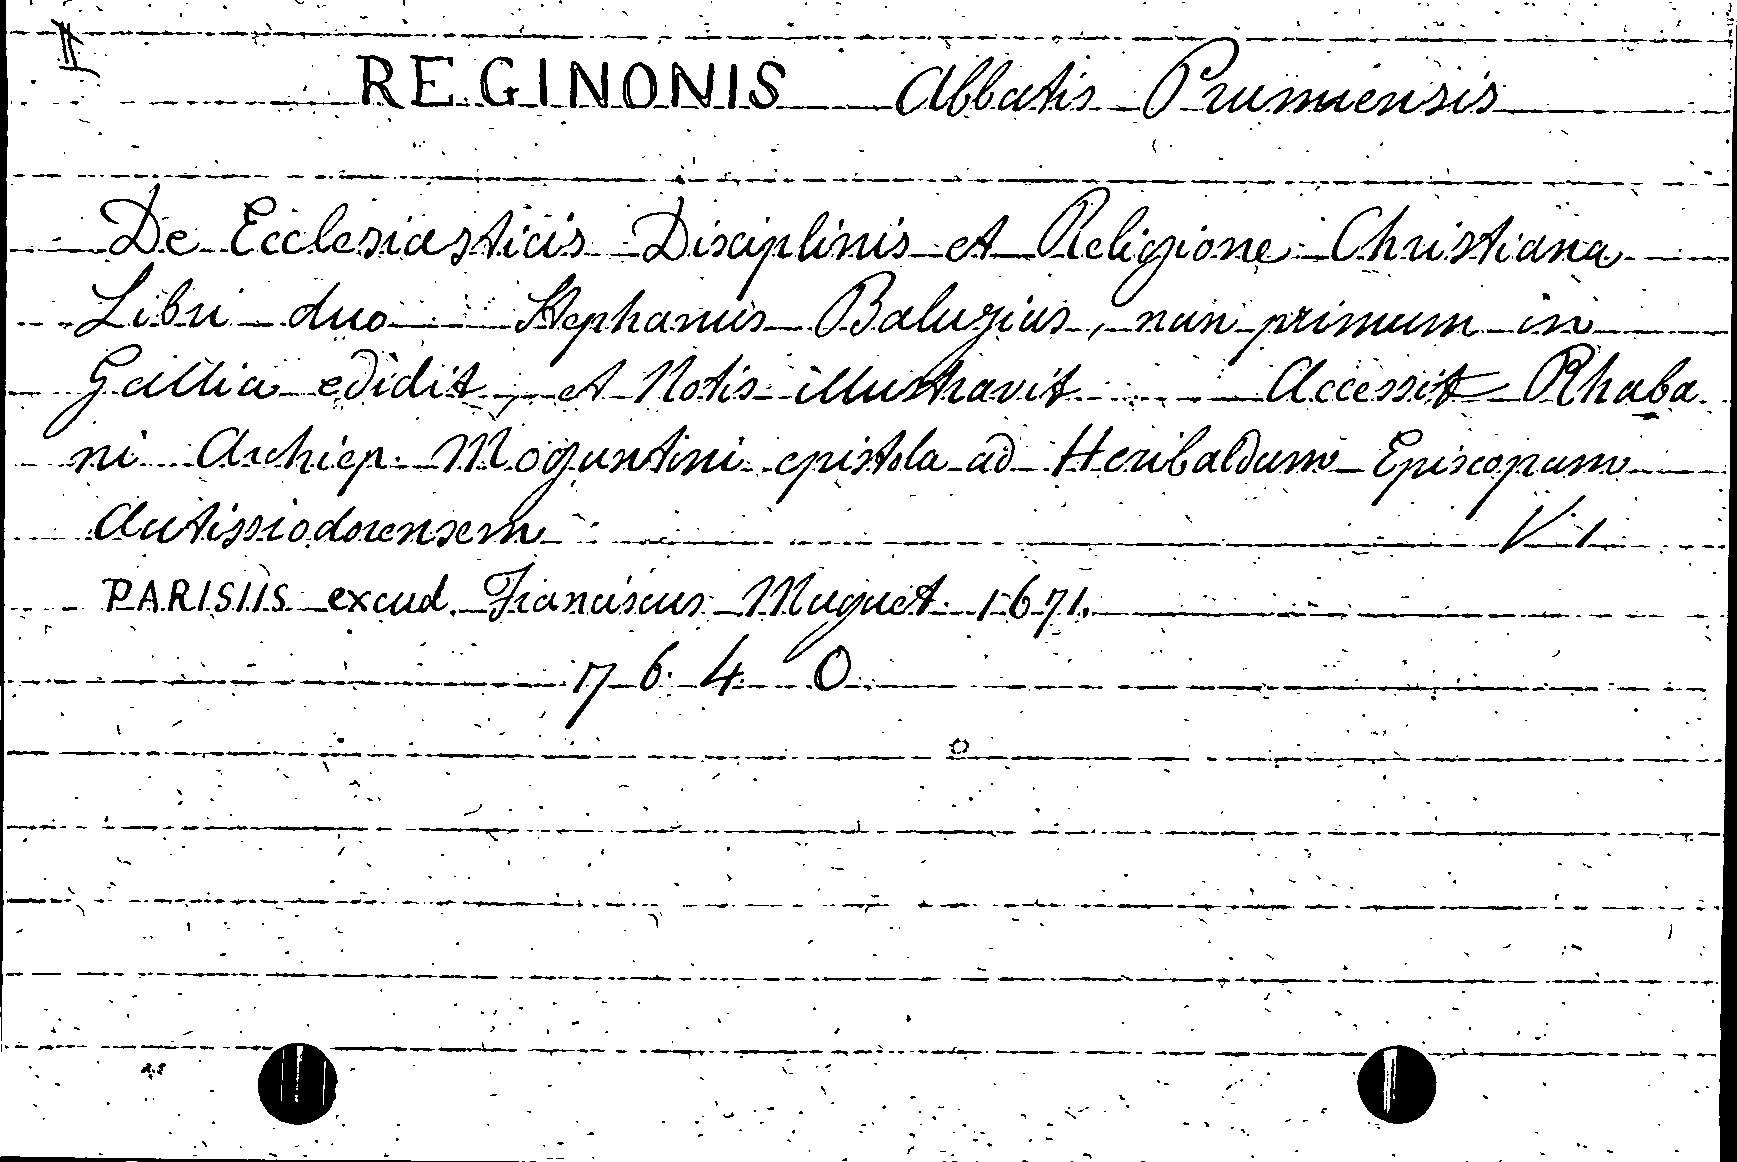 II
REGINONIS Abbatis Prumiensis
De Ecclesiasticis Disciplinis et Religione Christiana
Libri duo Stephanus Baluzius, nun primum in
Gallia edidit, et Notis illustravit Accessit Rhaba
ni Archiep. Moguntini epistola ad Heribaldum Episcopum
Autissiodorensem V. 1
PARISIIS excud. Franciscus Muguet. 1671.
7 6 4 0